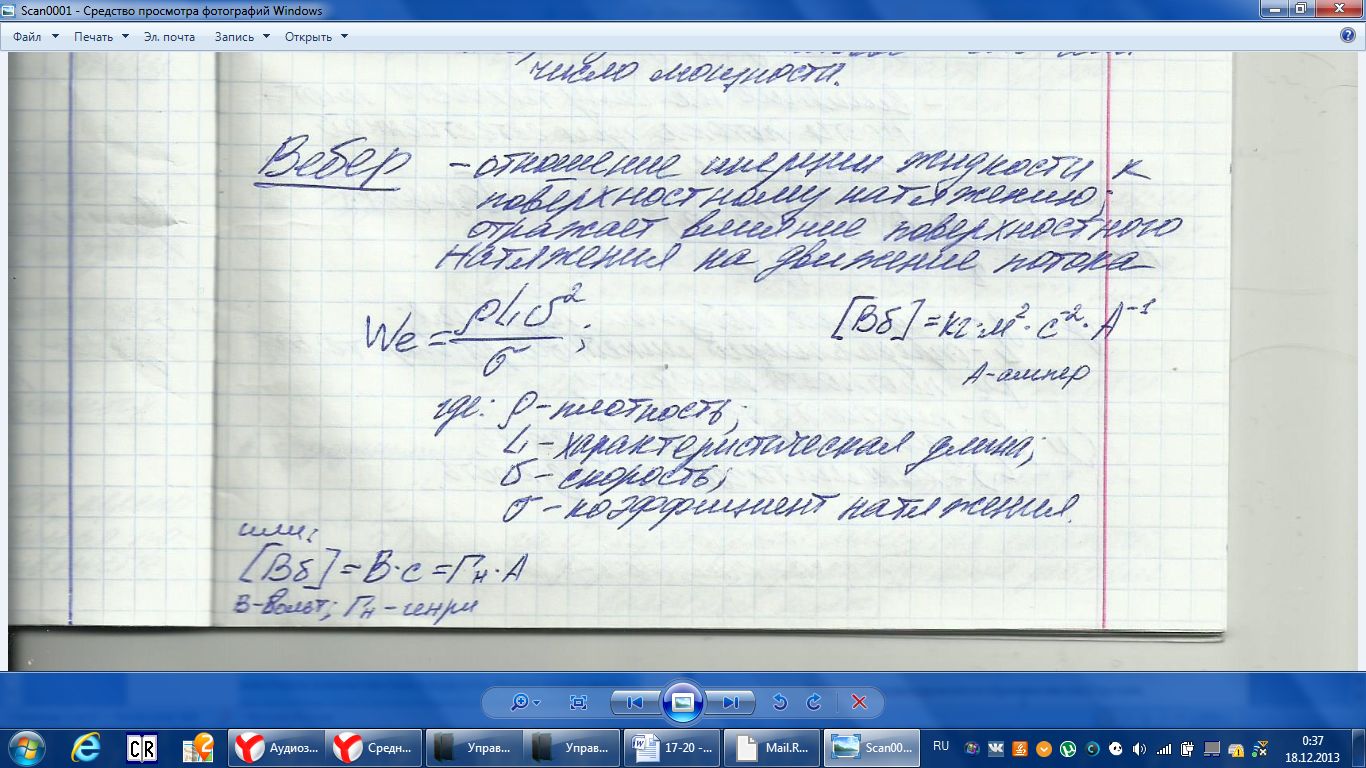 Scan0001 - Средство просмотра фотографий Windows
Файл Печать Эл. почта Запись Открыть
число мощности.
Вебер – отношение инерции жидкости к
поверхностному натяжению;
отражает влияние поверхностного
натяжения на движение потока
We = ρLυ²/σ; [Вб] = кг·м²·с⁻²·А⁻¹
А-ампер
где: ρ – плотность;
L – характеристическая длина;
υ – скорость;
σ – коэффициент натяжения.
или:
[Вб] = В·с = Гн·А
В-Вольт; Гн – генри
Аудиоз... Средн... Управ... Управ... 17-20 -... Mail.R... Scan00... RU 0:37
18.12.2013